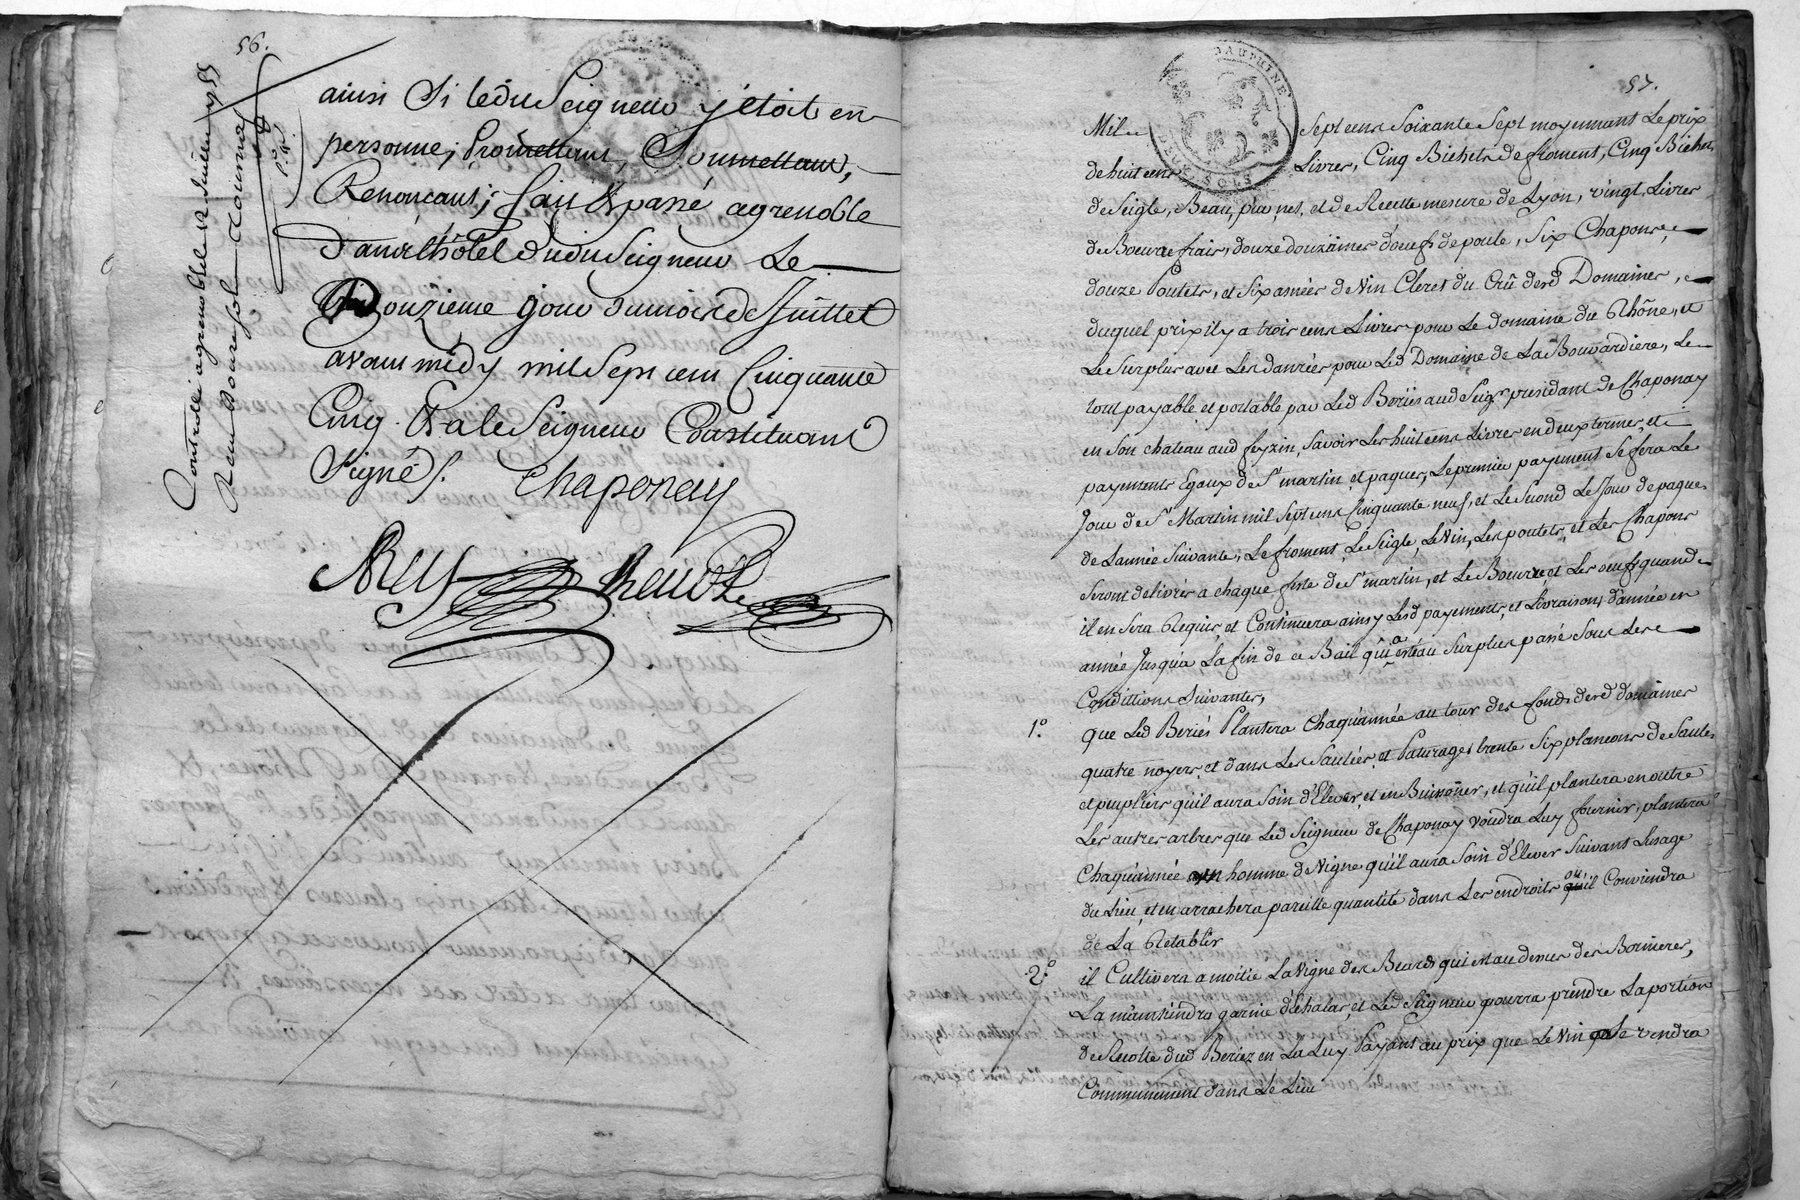 56.
Controllé a grenoble le 12 Juillet 1755
Reçu douze sols
ainsi si ledit Seigneur y étoit en
personne, Promettant, Soumettant,
Renonçant; fait & passé a grenoble
dans l'hôtel dudit Seigneur Le
Douzieme jour du mois de Juillet
avant midy mil sept cent Cinquante
Cinq. & a le Seigneur Constituant
Signé.
Chaponay
Rey
57.
DAUPHINE
DEUX SOLS
Mil sept cens soixante sept moyennant Le prix
de huit cens Livres, Cinq Bichets de froment, Cinq Bichets
de Seigle, Beau, pur, net, et de Recette mesure de Lyon, vingt Livres
de Beurre frais, douze douzaines d'oeufs de poule, six Chapons,
douze Poulets, et six anées de Vin Cleret du Crû desd Domaines,
duquel prix il y a trois cens Livres pour Le domaine du Rhône, et
Le Surplus avec Les danrées pour Led Domaine de La Bouvardiere, Le
tout payable et portable par Led Beriés aud Seigr president de Chaponay
en Son chateau aud feyzin, Savoir Les huit cens Livres en deux termes, et
payements Egaux de St martin, et paques, Le premier payement Se fera Le
Jour de St Martin mil Sept cens Cinquante neuf, et Le Second Le Jour de paques
de Lannée Suivante, Le froment, Le Seigle, Le Vin, Les poulets, et Les Chapons
Seront delivrés a chaque feste de St martin, et Le Beurre, et Les oeufs quand
il en Sera Requis, et Continuera ainsy Lesd payements, et Livraisons d'année en
année Jusqua La fin de ce Bail qui a esté au Surplus passé Sous Les
Condittions Suivantes,
1.° que Led Beriés Plantera Chaq'année au tour des fonds desd domaines
quatre noyers, et dans Les Saulées, et Paturages trente Six plançons de Saules
et peupliers qu'il aura Soin d'Elever, et en Buissoner, et qu'il plantera en outre
Les autres arbres que Led Seigneur de Chaponay voudra Luy fournir, plantera
Chaq'année un homme de Vigne qu'il aura Soin d'Elever Suivant Lusage
du Lieu, et en arrachera pareille quantité dans Les endroits ou il Conviendra
de La Retablir
2.° il Cultivera a moitié La Vigne des Beards qui est au dessus des Bornieres,
La maintiendra garnie d'Echalas, et Led Seigneur pourra prendre La portion
de Recolte dud Beriez en La Luy Payant au prix que Le Vin Se vendra
Communement dans Le Lieu